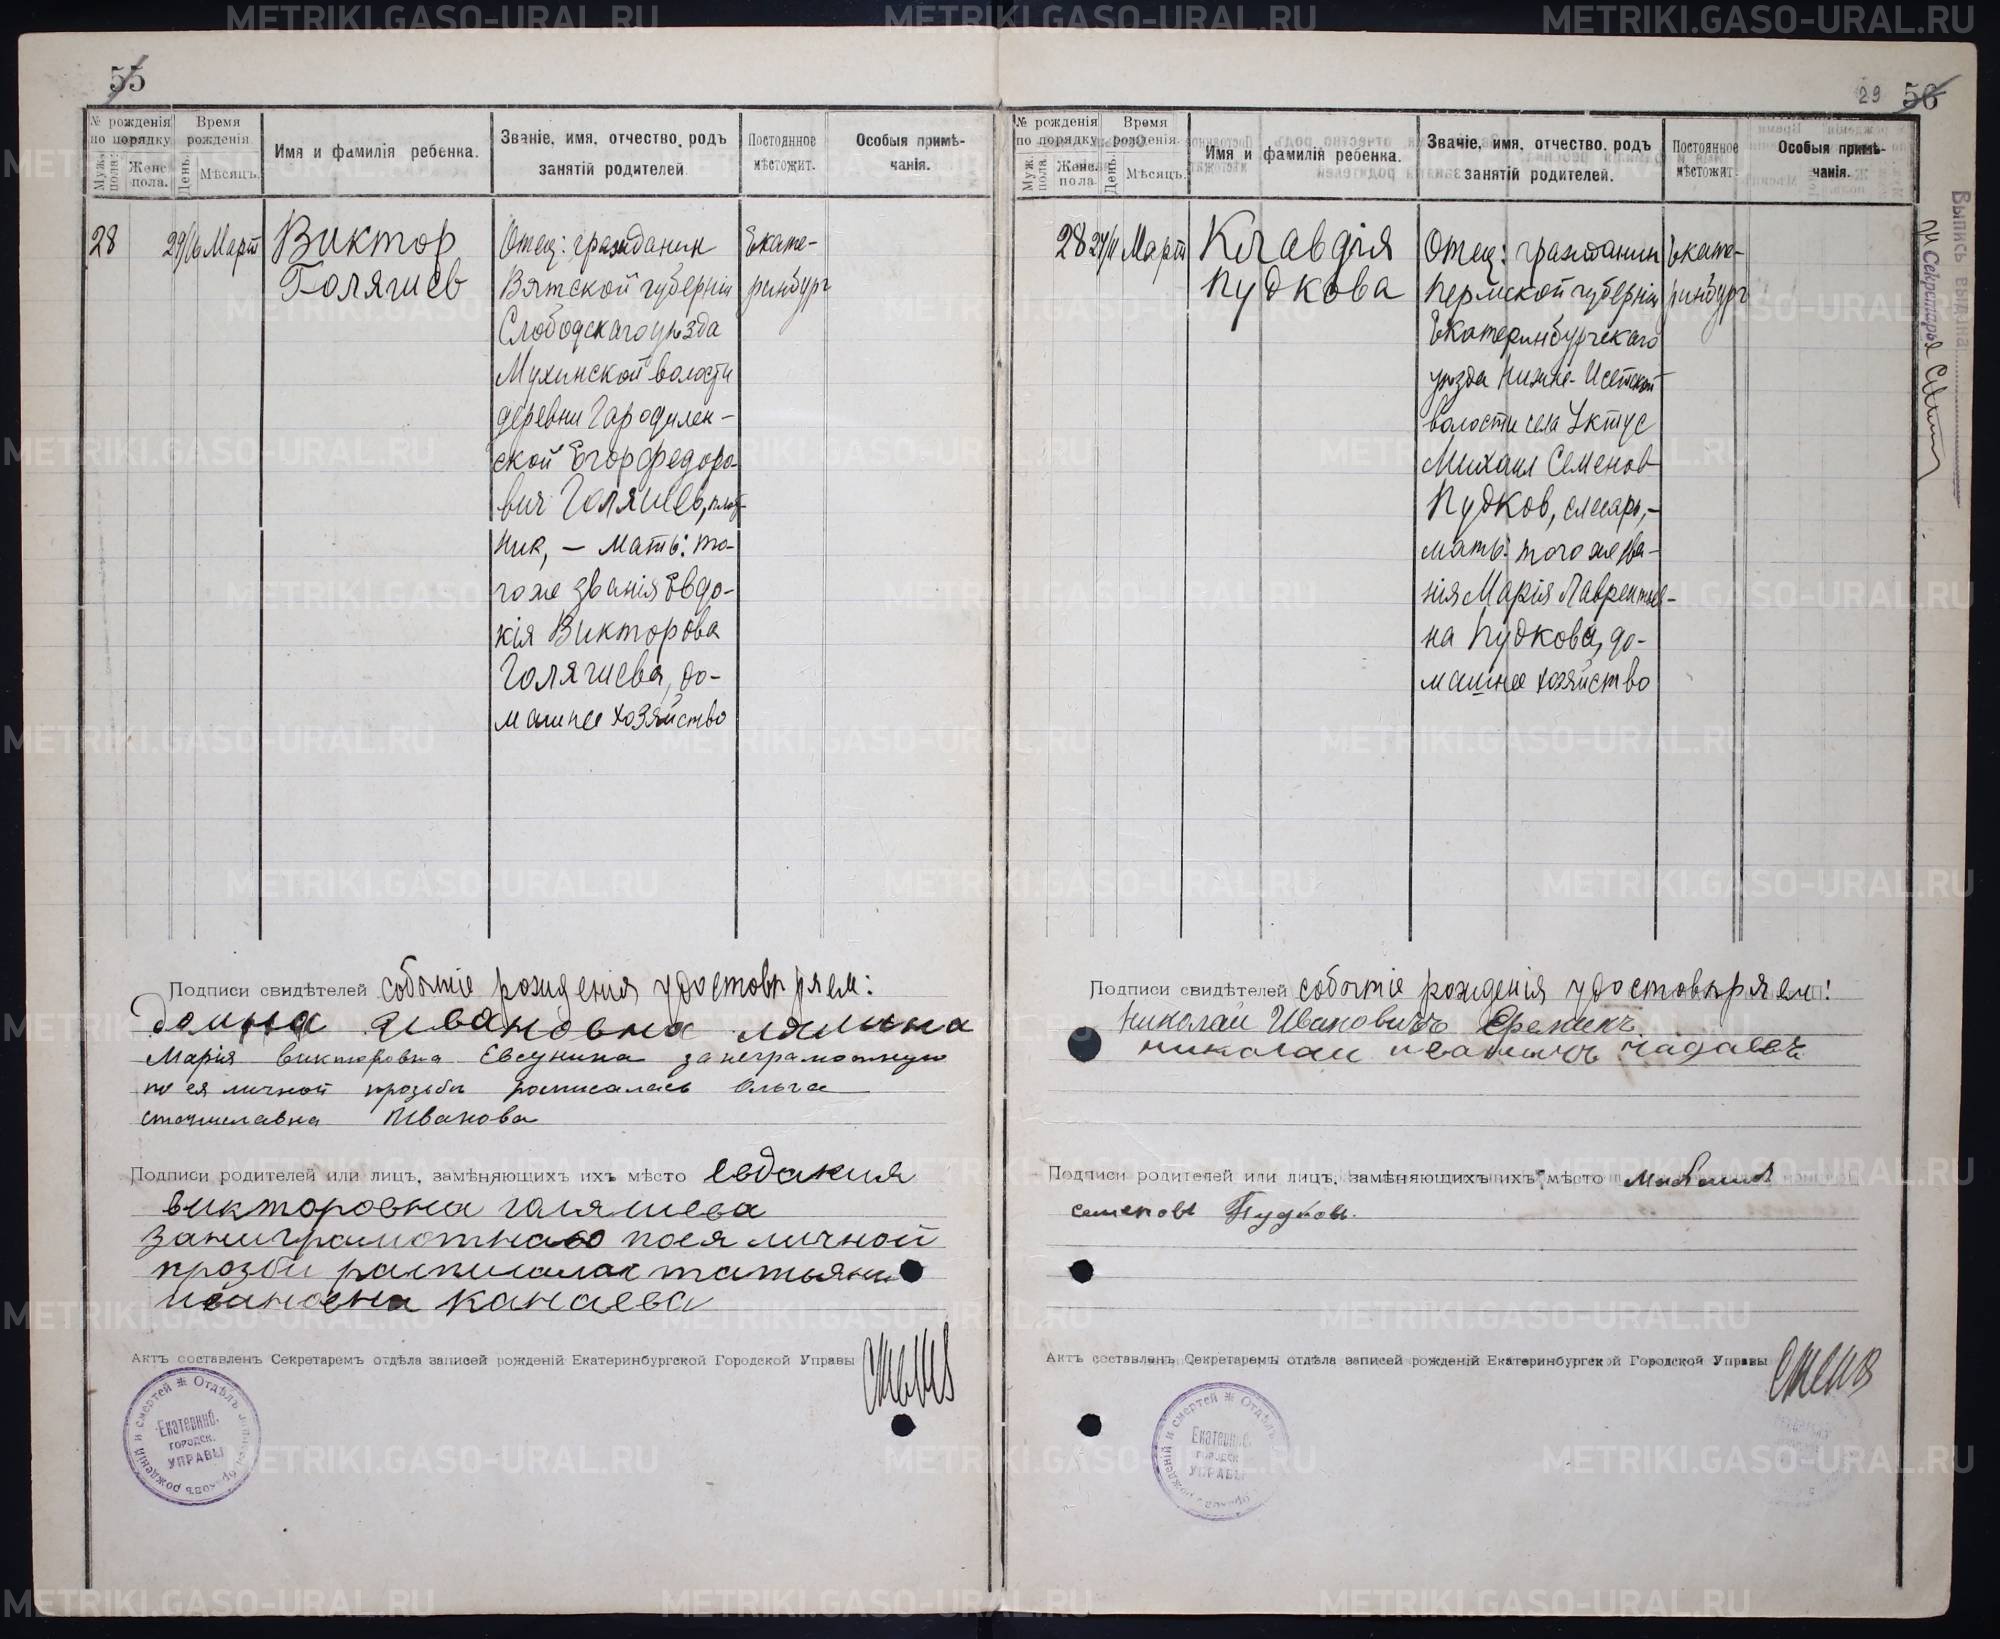 55
№ рожденія по порядку
Муж. пола.
Женс. пола.
Время рожденія
День.
Мѣсяцъ.
Имя и фамилія ребенка.
Званіе, имя, отчество, родъ занятій родителей
Постоянное мѣстожит.
Особыя примѣчанія.
28 29/16 Март
Виктор
Голяшев
Отец: гражданин
Вятской губерніи
Слободскаго уѣзда
Мухинской волости
деревни Городилен-
ской Егор Федоро-
вич Голяшев, плот-
ник, — Мать: то-
гоже званія Евдо-
кія Викторова
Голяшева, до-
машнее хозяйство
Екате-
ринбург
Подписи свидѣтелей событіе рожденія удостовѣряем:
Марія Викторовна Евсунина за неграмотную
по ея личной прозьбы росписалась Ольга
Иванова
Подписи родителей или лицъ, замѣняющихъ ихъ мѣсто евдакия
викторовна галяшева
занеграмотнаю поея личной
прозьби расписалас татьяна
ивановна канаева
Актъ составленъ Секретаремъ отдѣла записей рожденій Екатеринбургской Городской Управы
Екатеринб.
городск.
УПРАВЫ
29 56
№ рожденія по порядку
Муж. пола.
Женс. пола.
Время рожденія.
День.
Мѣсяцъ.
Имя и фамилія ребенка.
Званіе, имя, отчество, родъ занятій родителей.
Постоянное мѣстожит.
Особыя примѣчанія.
28 24/11 Март
Клавдія
Пудкова
Отец: гражданин
Пермской губерніи
Екатеринбургскаго
уѣзда Нижне-Исетской
волости села Уктус
Михаил Семенов
Пудков, слесарь, —
мать: того же зва-
нія Марія Лавренть-
на Пудкова, до-
машнее хозяйство
Екате-
ринбург
Выпись выдана
Секретарь
Подписи свидѣтелей событіе рожденія удостовѣряем:
Николай Ивановичъ
Подписи родителей или лицъ, замѣняющихъ ихъ мѣсто
семеновъ Пудковъ.
Актъ составленъ Секретаремъ отдѣла записей рожденій Екатеринбургской Городской Управы
Екатеринб.
городск.
УПРАВЫ
METRIKI.GASO-URAL.RU